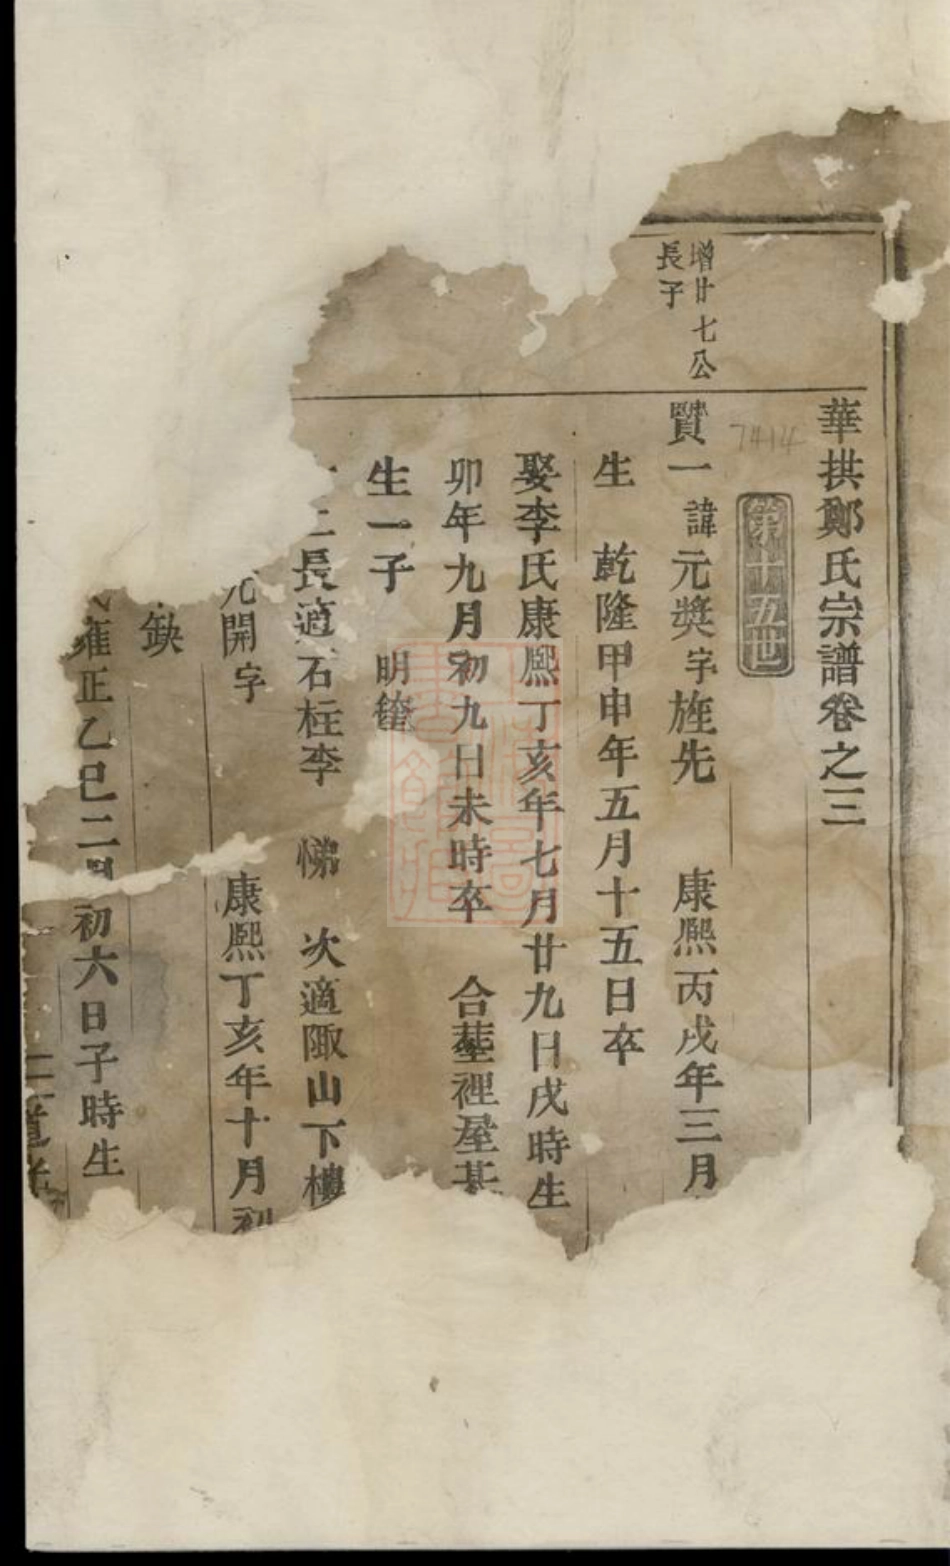 華拱鄭氏宗譜卷之三
第十五世
7414
增廿七公
長子
賢一 諱元奬字旌先 康熙丙戌年三月
生 乾隆甲申年五月十五日卒
娶李氏康熙丁亥年七月廿九日戌時生
卯年九月初九日未時卒 合塟裡屋基
生一子 明
二長適石柱李 次適陬山下樓
元開字 康熙丁亥年十月初
缺
雍正乙巳二月初六日子時生
二